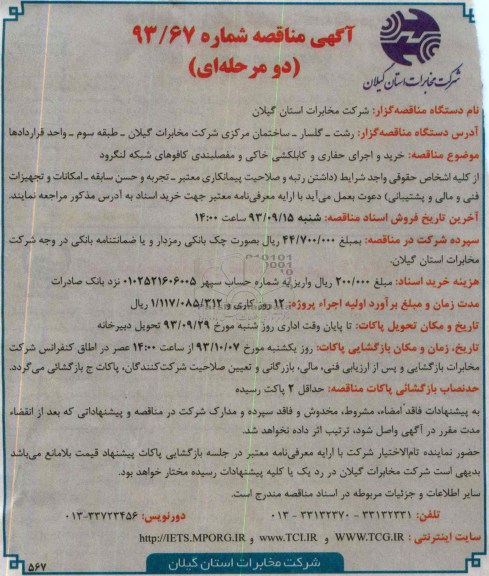 آگهی مناقصه شماره ۹۳/۶۷
(دو مرحله‌ای)
شرکت مخابرات استان گیلان
نام دستگاه مناقصه‌گزار: شرکت مخابرات استان گیلان
آدرس دستگاه مناقصه‌گزار: رشت ـ گلسار ـ ساختمان مرکزی شرکت مخابرات گیلان ـ طبقه سوم ـ واحد قراردادها
موضوع مناقصه: خرید و اجرای حفاری و کابلکشی خاکی و مفصلبندی کافوهای شبکه لنگرود
از کلیه اشخاص حقوقی واجد شرایط (داشتن رتبه و صلاحیت پیمانکاری معتبر ـ تجربه و حسن سابقه ـ امکانات و تجهیزات
فنی و مالی و پشتیبانی) دعوت بعمل می‌آید با ارایه معرفی‌نامه معتبر جهت خرید اسناد به آدرس مذکور مراجعه نمایند.
آخرین تاریخ فروش اسناد مناقصه: شنبه ۹۳/۰۹/۱۵ ساعت ۱۴:۰۰
سپرده شرکت در مناقصه: بمبلغ ۴۴/۷۰۰/۰۰۰ ریال بصورت چک بانکی رمزدار و یا ضمانتنامه بانکی در وجه شرکت
مخابرات استان گیلان.
هزینه خرید اسناد: مبلغ ۲۰۰/۰۰۰ ریال واریز به شماره حساب سپهر ۰۱۰۲۵۲۱۶۰۶۰۰۵ نزد بانک صادرات
مدت زمان و مبلغ برآورد اولیه اجراء پروژه: ۱۲ روز کاری و ۱/۱۱۷/۰۸۵/۳۱۲ ریال
تاریخ و مکان تحویل پاکات: تا پایان وقت اداری روز شنبه مورخ ۹۳/۰۹/۲۹ تحویل دبیرخانه
تاریخ، زمان و مکان بازگشایی پاکات: روز یکشنبه مورخ ۹۳/۱۰/۰۷ از ساعت ۱۴:۰۰ عصر در اطاق کنفرانس شرکت
مخابرات بازگشایی و پس از ارزیابی فنی، مالی، بازرگانی و تعیین صلاحیت شرکت‌کنندگان، پاکات ج بازگشائی می‌گردد.
حدنصاب بازگشائی پاکات مناقصه: حداقل ۲ پاکت رسیده
به پیشنهادات فاقد امضاء، مشروط، مخدوش و فاقد سپرده و مدارک شرکت در مناقصه و پیشنهاداتی که بعد از انقضاء
مدت مقرر در آگهی واصل شود، ترتیب اثر داده نخواهد شد.
حضور نماینده تام‌الاختیار شرکت با ارایه معرفی‌نامه معتبر در جلسه بازگشایی پاکات پیشنهاد قیمت بلامانع می‌باشد
بدیهی است شرکت مخابرات گیلان در رد یک یا کلیه پیشنهادات رسیده مختار خواهد بود.
سایر اطلاعات و جزئیات مربوطه در اسناد مناقصه مندرج است.
تلفن: ۳۳۱۳۲۳۳۱ - ۳۳۱۳۲۳۷۰ - ۰۱۳ دورنویس: ۳۳۷۲۳۴۵۶-۰۱۳
سایت اینترنتی: WWW.TCG.IR و www.TCI.IR و http://IETS.MPORG.IR
شرکت مخابرات استان گیلان
۵۶۷